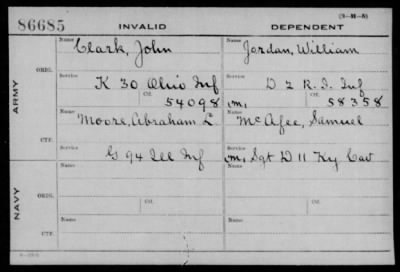 (3-M-5)
86685 INVALID DEPENDENT
Name Name
Clark, John Jordan, William
ORIG. Service Service
K 30 Ohio Inf D 2 R. I. Inf
Ctf. Ctf.
54098 (m) 58358
ARMY
Name Name
Moore, Abraham L McAfee, Samuel
CTF. Service Service
G 94 Ill Inf (m) Sgt D 11 Ky Cav
NAVY
Name Name
ORIG. Service Service
Ctf. Ctf.
Name Name
CTF. Service Service